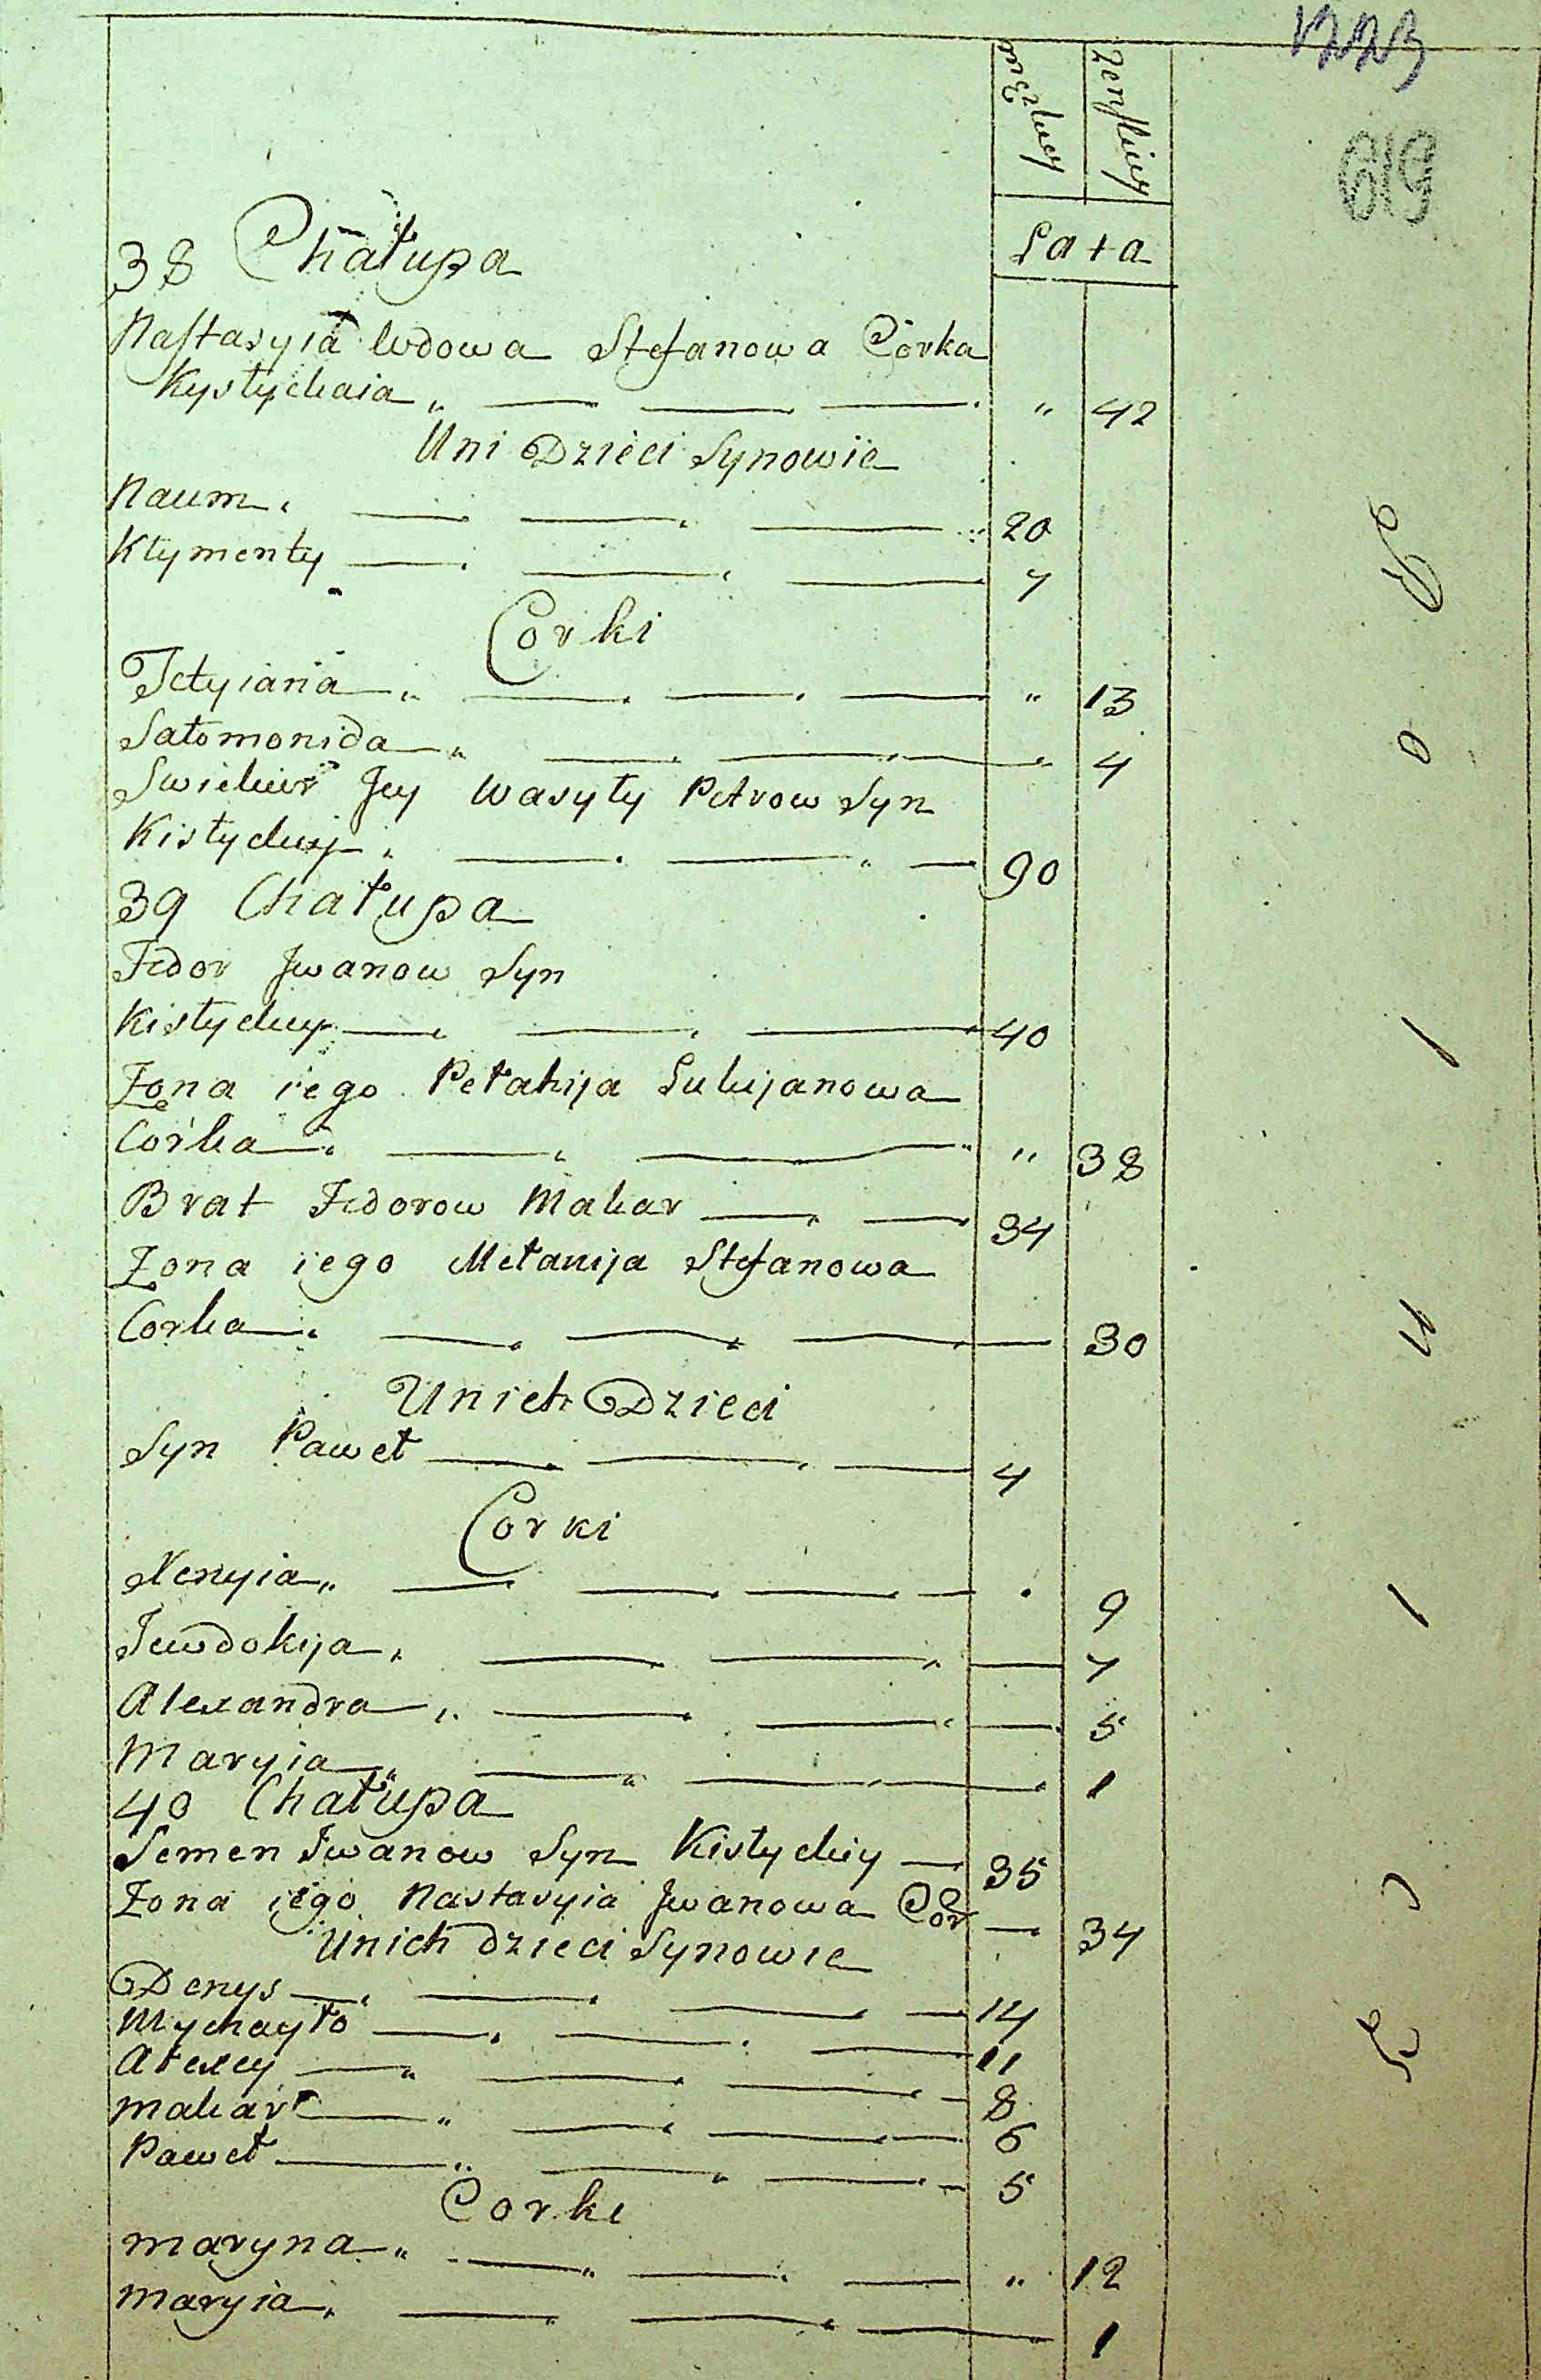 1223
619
męzkey żenskiey
Lata
38 Chałupa
Nastasyia wdowa Stefanowa Córka
Kystyckaia „ „ 42
Uni Dzieci Synowie
Naum 20
Kłymenty 7
Corki
Tetyiana „ 13
Sałomonida 4
Swiekier Jey Wasyły Petrow Syn
Kistyckij 90
39 Chałupa
Fedor Jwanow Syn
Kistyckiy 40
Żona iego Pełahija Lukijanowa
Corka „ 38
Brat Fedorow Makar 34
Żona iego Mełanija Stefanowa
Corka 30
Unich Dzieci
Syn Paweł 4
Corki
Xenyia 9
Jewdokija 7
Alexandra 5
Maryia 1
40 Chałupa
Semen Jwanow Syn Kistyckiy 35
Żona iego Nastasyia Jwanowa Cor 34
Unich dzieci Synowie
Denys 14
Mychayło 11
Ałexey 8
Makar 6
Paweł 5
Corki
Maryna „ 12
Maryia 1